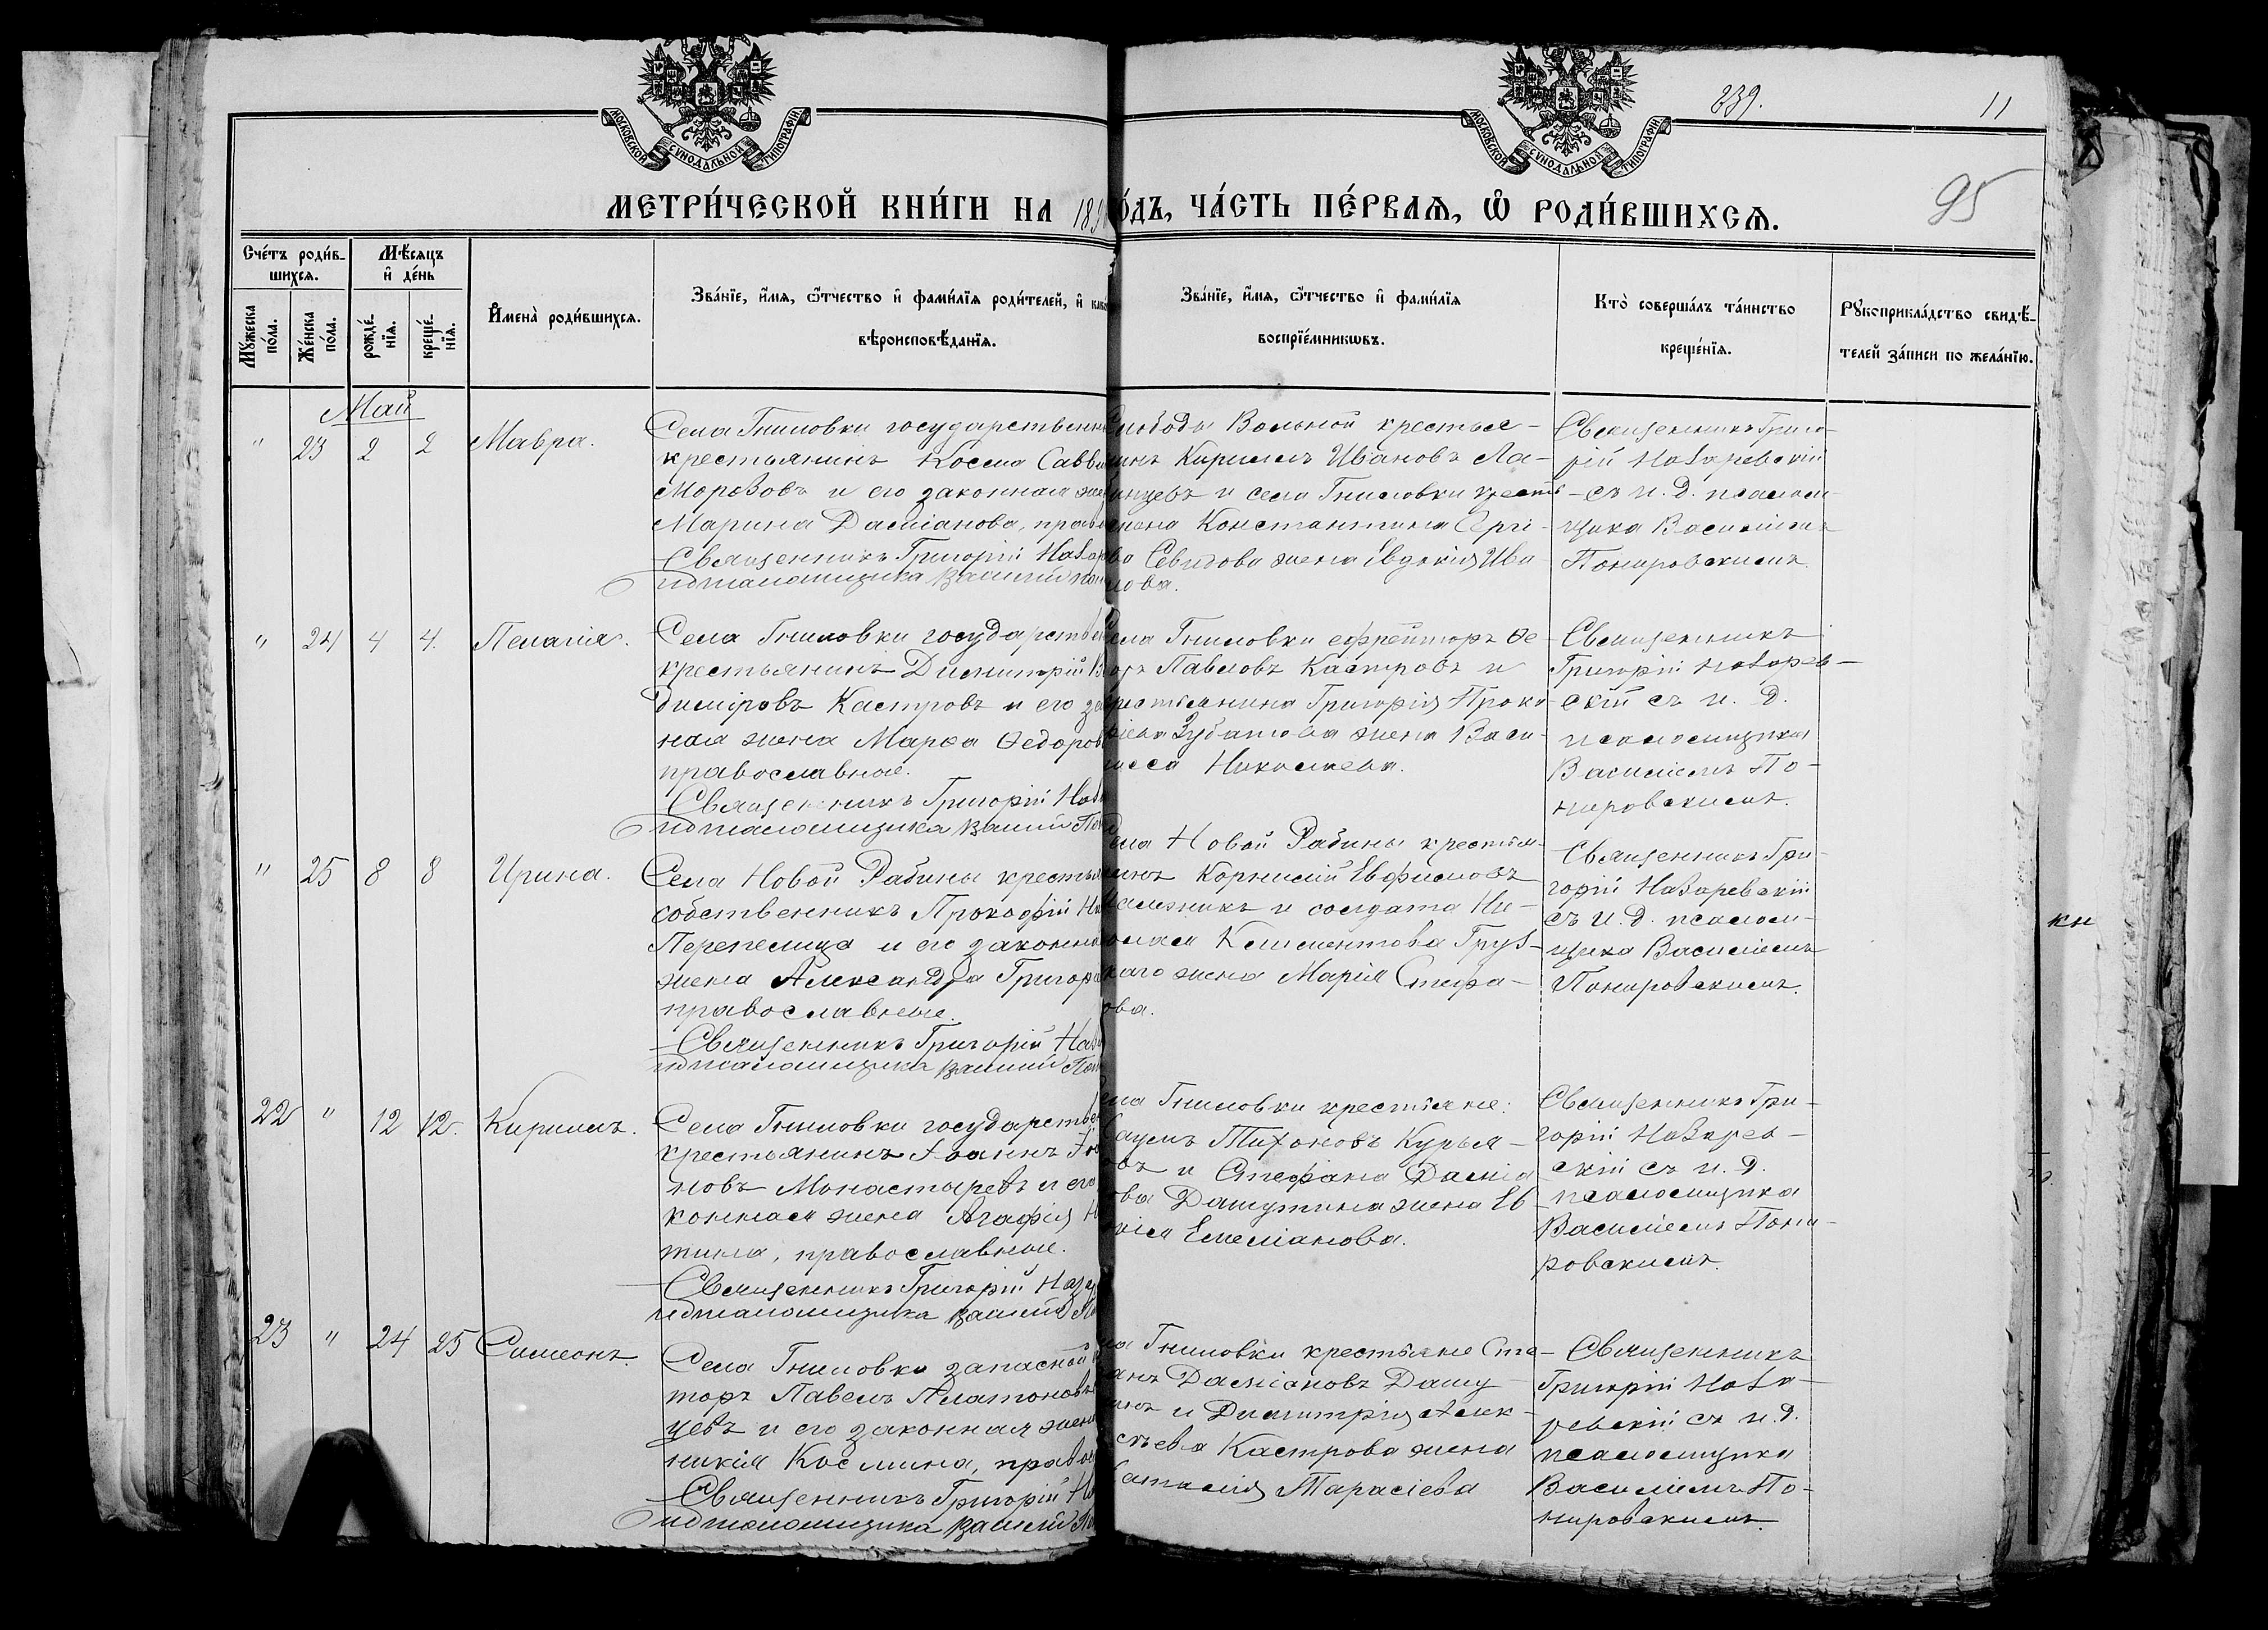 МОСКОВСКОЙ СѴНОДАЛЬНОЙ ТИПОГРАФІИ
МОСКОВСКОЙ СѴНОДАЛЬНОЙ ТИПОГРАФІИ
339.
11
95
МЕТРИ́ЧЕСКОЙ КНИ́ГИ НА 189
О́ДЪ, ЧА́СТЬ ПЕ́РВАѦ, Ѿ РОДИ́ВШИХСѦ.
Сче́тъ роди́в-
шихсѧ.
Мꙋжеска
по́ла.
Же́нска
по́ла.
Мѣ́сѧцъ
и҆ де́нь
рожде́-
нїѧ.
креще́-
нїѧ.
И҆мена̀ роди́вшихсѧ.
Зва́нїе, и҆́мѧ, ѻ҆́тчество и҆ фами́лїѧ роди́телей, и҆ како
вѣроисповѣ́данїѧ.
Зва́нїе, и҆́мѧ, ѻ҆́тчество и҆ фами́лїѧ
воспрїе́мникѡвъ.
Кто̀ соверша́лъ та́инство
креще́нїѧ.
Рꙋкоприкла́дство свидѣ́-
телей за́писи по жела́нїю.
Май
" 23 2 2 Мавра.
Села Гниловки государственн
крестьянинъ Косма Савви
Морозовъ и его законная же
Марина Даміанова, право
Священникъ Григорій Назар
и д псаломщика Василій Пон
Слободы Вольной крестья-
нинъ Кириллъ Ивановъ Ла-
инцевъ и села Гниловки кресть-
янина Константина Сергі-
ва Севидова жена Евдокія Ива
нова.
Священникъ Григо-
рій Назаревскій
съ и. д. псалом-
щика Василіемъ
Понировскимъ.
" 24 4 4. Пелагія.
Села Гниловки государствен
крестьянинъ Димитрій В
диміровъ Кастровъ и его за
ная жена Марѳа Ѳедоров
православные.
Священникъ Григорій Наз
и д псаломщика Василій Пон
Села Гниловки ефрейторъ Ѳе-
оръ Павловъ Кастровъ и
крестьянина Григорія Проко-
ріева Зубатова жена Васи-
лисса Николаева.
Священникъ
Григорій Назарев-
скій съ и. д.
псаломщика
Василіемъ По-
нировскимъ.
" 25 8 8 Ирина.
Села Новой Рабины крестья
собственникъ Прокофій Ни
Перепелица и его законна
жена Александра Григорь
православные.
Священникъ Григорій Наз
и д псаломщика Василій Пон
Села Новой Рабины крестья-
нинъ Корнилій Евфимовъ
и солдата Ни-
колая Климентова Груз-
каго жена Марія Стефа-
ова.
Священникъ Гри-
горій Назаревскій
съ и. д. псалом-
щика Василіемъ
Понировскимъ.
22 " 12 12. Кириллъ.
Села Гниловки государствен
крестьянинъ Іоаннъ
новъ Монастыревъ и его
конная жена Агафія Н
тина, православные.
Священникъ Григорій Назар
и д псаломщика Василій По
ела Гниловки крестьяне:
Тихоновъ Курья-
овъ и Стефана Даміа
ова Дашутина жена Ев
окія Емеліанова.
Священникъ Гри-
горій Назарев-
скій съ и. д.
псаломщика
Василіемъ Пони-
ровскимъ.
23 " 24 25 Симеонъ.
Села Гниловки запасной
торъ Павелъ Платоновъ
цевъ и его законная жена
никія Космина, правос
Священникъ Григорій На
и д псаломщика Василій По
ла Гниловки крестьяне Сте-
анъ Даміановъ Дашу
инъ и Димитрія Алек-
сѣева Кастрова жена
Наталія Тарасіева
Священникъ
Григорій Наза-
ревскій съ и. д.
псаломщика
Василіемъ По-
нировскимъ.
кн